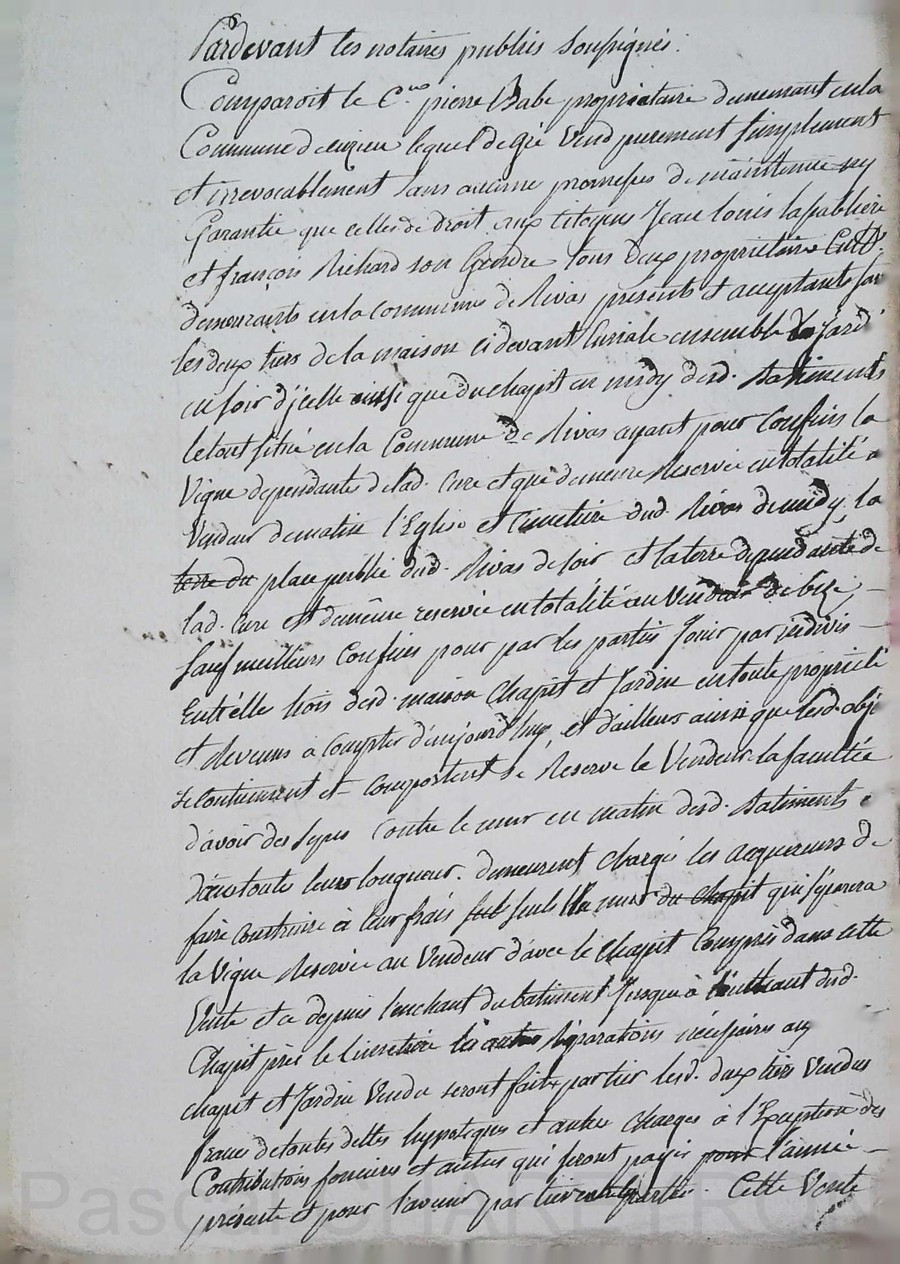 Pardevant les notaires publics soussignés.
Comparoit le C.en pierre Babe propriétaire demeurant en la
Commune de lequel de gré Vend purement simplement
et irrevocablement sans aucune promesses de maintenue ny
Garantie que celles de droit aux Citoyens Jean louis lasablière
et françois Richard son Gendre tous deux propriétaires Cult.
demeurants en la commune de Rivas présents et acceptants
les deux tiers de la maison cidevant Curiale ensemble Jardi
en soir d'jcelle ainsi que du chapit en midy desd. Batiments
le tout situé en la Commune de Rivas ayant pour Confins la
Vigne dependante de lad. Cure et que demeure Reservée en totalité a
Vendeur de matin l'Eglise et Cimetière dud. Rivas de midy, la
terre du place public dud. Rivas de soir et la terre dependante de
lad. Cure et demeure reservée en totalité au Vendeur de bize,
Sauf meilleurs Confins pour par les parties Jouir par jndivis
Entr'elle trois desd. maison Chapit et Jardin en toute propriété
et Revenus à Compter d'aujourd'huy, et d'ailleurs ainsi que lesd. obje
se contiennent et comportent se Reserve le Vendeur la facultée
d'avoir des contre le mur en matin desd. Batiments
toute leurs longueur. demeurent chargés les acquereurs de
faire construire à leur frais seul seuls mur du chapit qui séparera
la Vigne Reservée au Vendeur d'avec le Chapit Compris dans cette
Vente et ce depuis du batiment Jusqu'à dud.
Chapit près le Cimetière les autres Réparations nécéssaires aux
chapit et Jardin Vendu seront faites par tier lesd. deux tiers Vendus
francs de toutes dettes hypotèques et autres Charges à l'Exception des
Contributions foncières et autres qui seront payés pour l'année
présente et pour l'avenir par tier parties. Cette Vente
Pascal CHARETRON